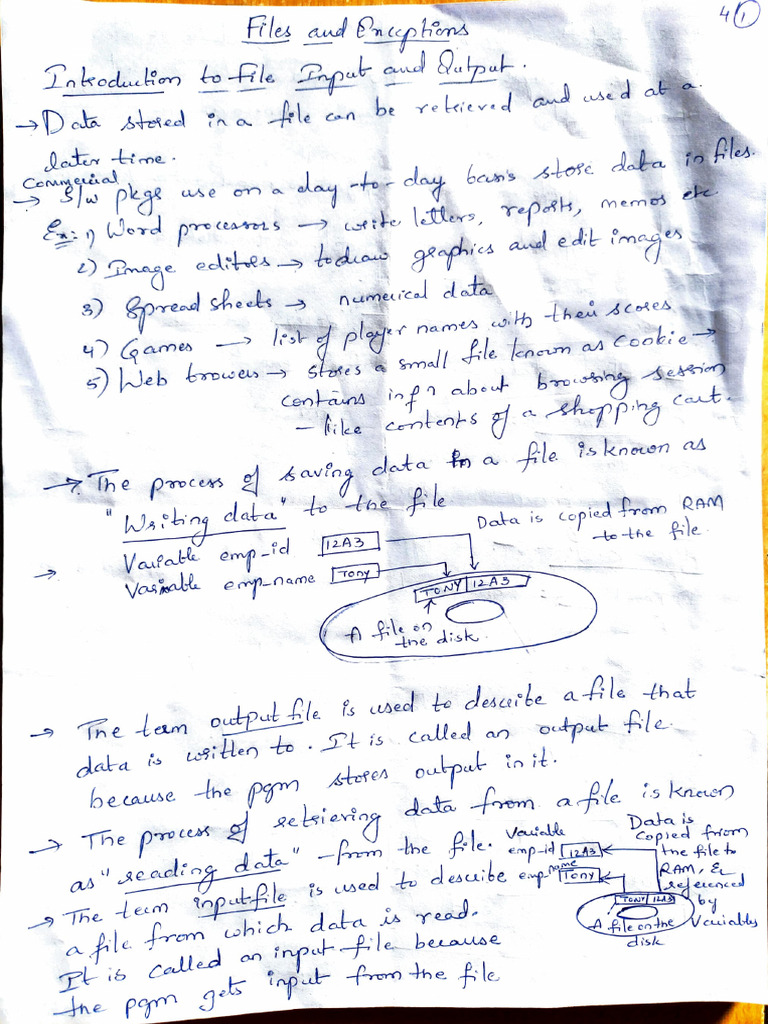 4 1
Files and Exceptions
Introduction to File Input and Output.
→ Data stored in a file can be retrieved and used at a
later time.
Commercial
→ S/w pkgs use on a day-to-day basis store data in files.
Ex:- 1) Word processors → write letters, reports, memos etc
2) Image editors → to draw graphics and edit images
3) Spread sheets → numerical data
4) Games → list of player names with their scores
5) Web browers → stores a small file known as cookie →
contains infn about browsing session
- like contents of a shopping cart.
→ The process of saving data in a file is known as
"Writing data" to the file.
Data is copied from RAM
to the file.
→ Variable emp_id 12A3
Variable emp_name Tony
TONY 12A3
A file on
the disk.
→ The term output file is used to describe a file that
data is written to. It is called an output file
because the pgm stores output in it.
→ The process of retrieving data from a file is known
as "reading data" - from the file.
→ The term input file is used to describe
a file from which data is read.
It is called an input file because
the pgm gets input from the file
Variable
emp_id 12A3
emp_name Tony
Data is
copied from
the file to
RAM, &
referenced
by
Variables
TONY 12A3
A file on the
disk